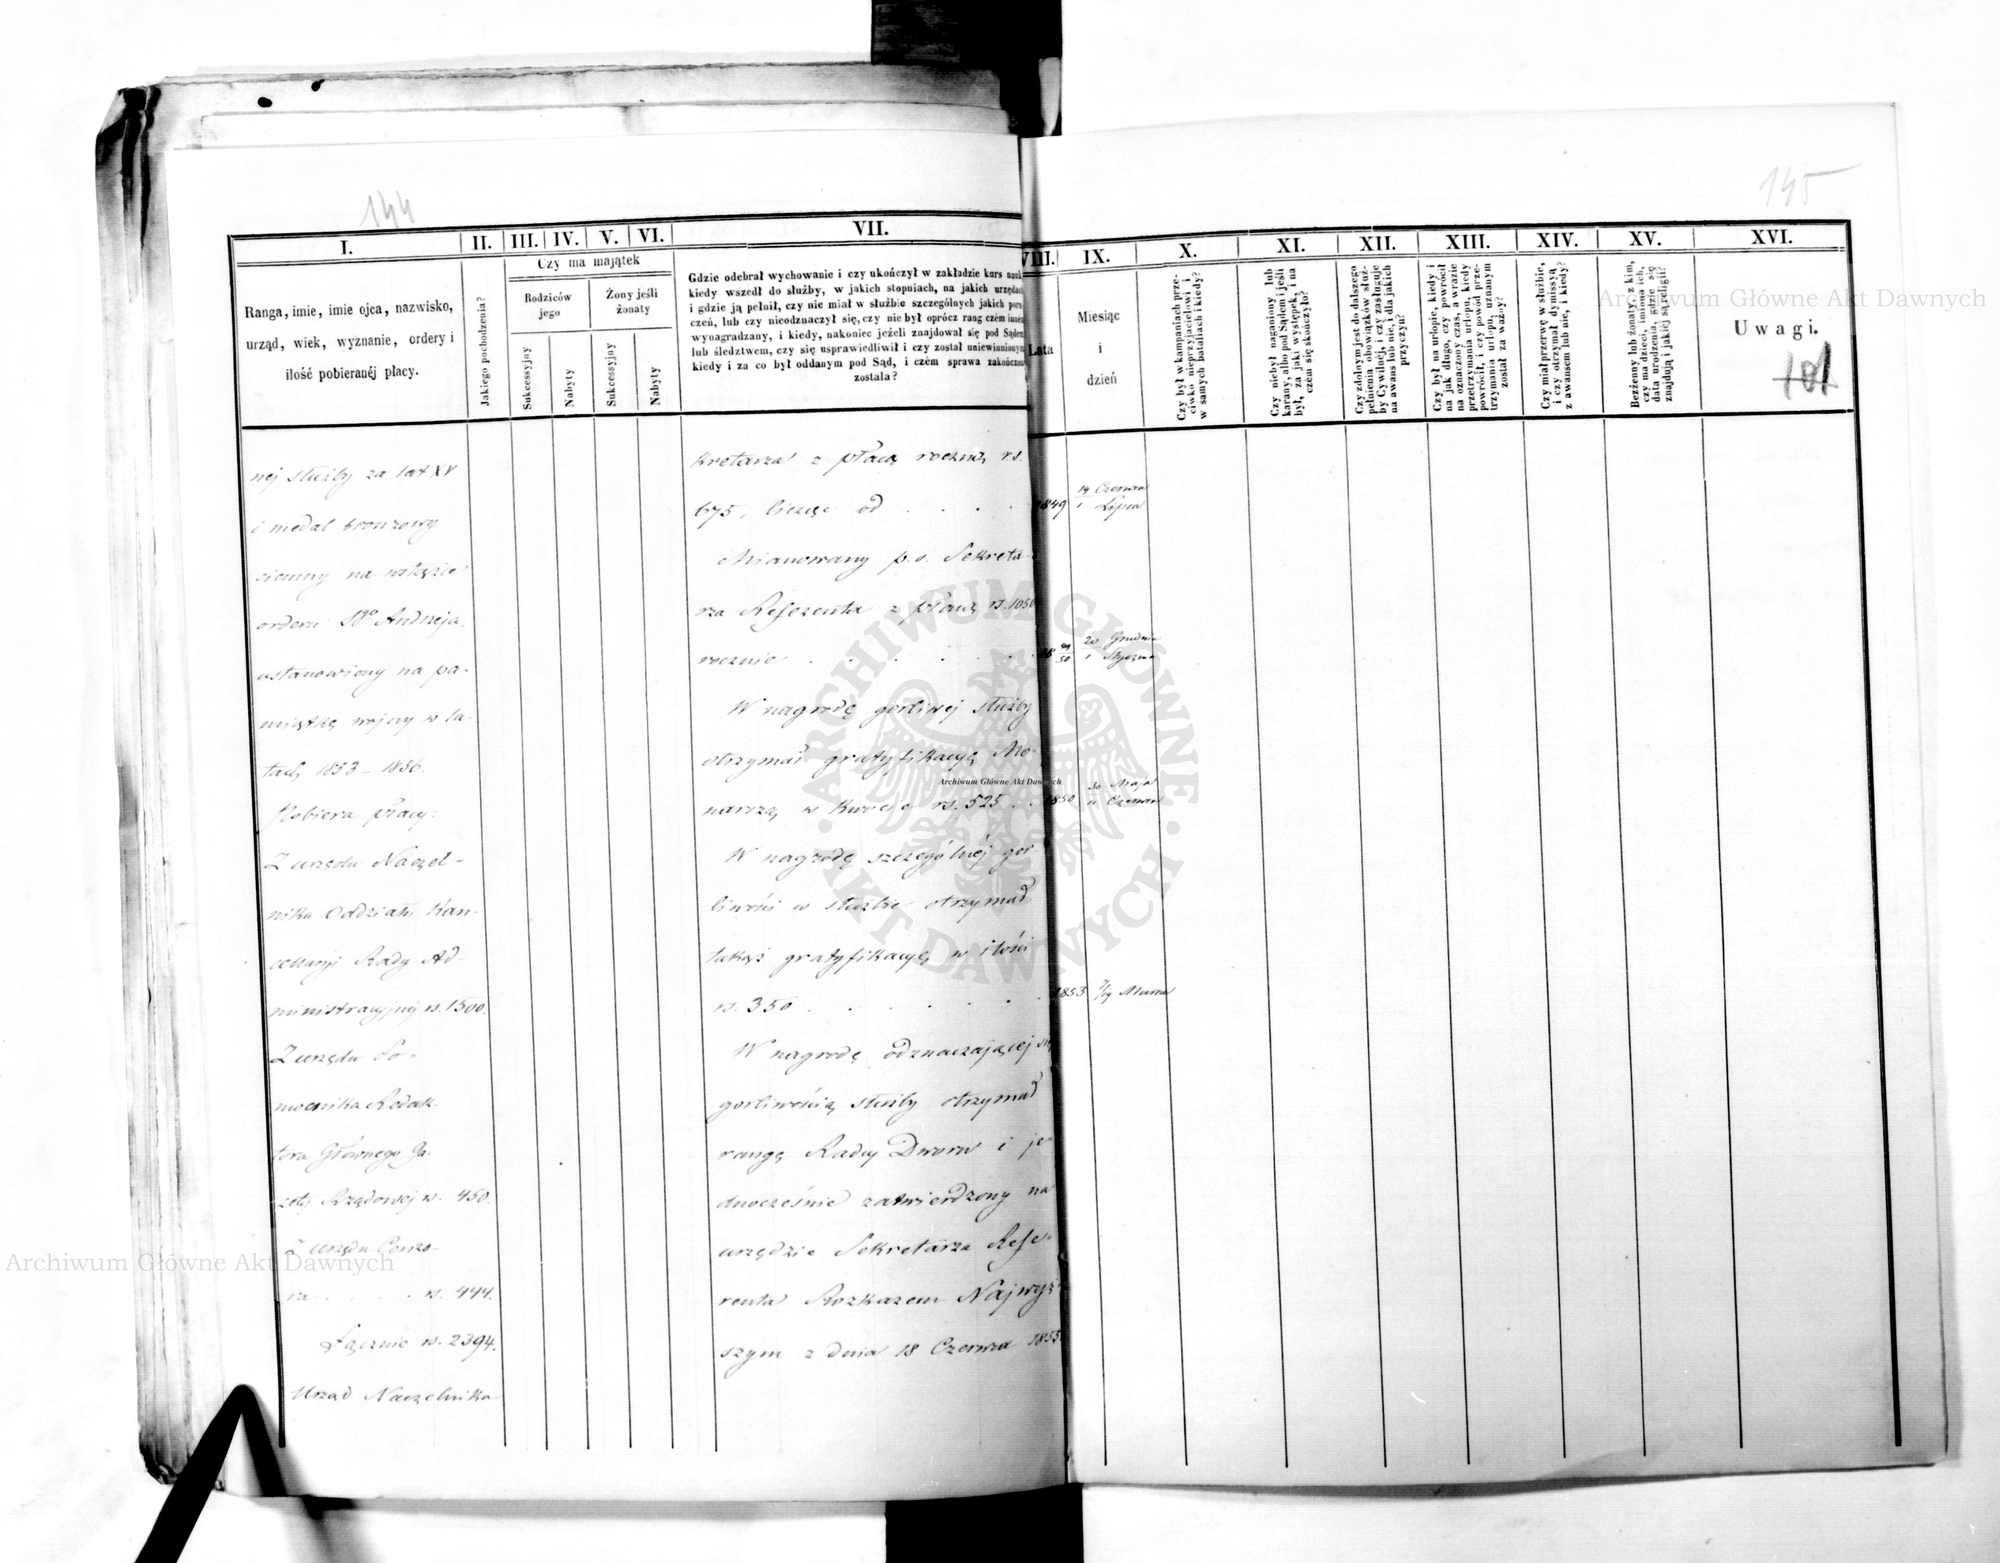 144
145
I.
II.
III.
IV.
V.
VI.
VII.
VIII.
IX.
X.
XI.
XII.
XIII.
XIV.
XV.
XVI.
Ranga, imie, imie ojca, nazwisko,
urząd, wiek, wyznanie, ordery i
ilość pobieranéj płacy.
Jakiego pochodzenia?
Czy ma majątek
Rodziców
jego
Żony jeśli
żonaty
Sukcessyjny
Nabyty
Sukcessyjny
Nabyty
Gdzie odebrał wychowanie i czy ukończył w zakładzie kurs nauk
kiedy wszedł do służby, w jakich stopniach, na jakich urzędach
i gdzie ją pełnił, czy nie miał w służbie szczególnych jakich poru-
czeń, lub czy nieodznaczył się, czy nie był oprócz rang czém inném
wynagradzany, i kiedy, nakoniec jeżeli znajdował się pod Sądem
lub śledztwem, czy się usprawiedliwił i czy został uniewinnionym
kiedy i za co był oddanym pod Sąd, i czém sprawa zakończoną
została?
Lata
Miesiąc
i
dzień
Czy był w kampaniach prze-
ciwko nieprzyjacielowi i
w samych bataliach i kiedy?
Czy niebył naganiony lub
karany, albo pod Sądem i jeśli
był, za jaki występek, i na
czém się skończyło?
Czy zdolnym jest do dalszego
pełnienia obowiązków służ-
by Cywilnéj, i czy zasługuje
na awans lub nie, i dla jakich
przyczyn?
Czy był na urlopie, kiedy i
na jak długo, czy powrócił
na oznaczony czas, a w razie
przetrzymania urlopu, kiedy
powrócił, i czy powód prze-
trzymania urlopu uznanym
został za ważny?
Czy miał przerwę w służbie,
i czy otrzymał dymissyą
z awansem lub nie, i kiedy?
Bezżenny lub żonaty, z kim,
czy ma dzieci, imiona ich,
data urodzenia, gdzie się
znajdują i jakiéj są religii?
Uwagi.
101
nej służby za lat XV
i medal bronzowy
ciemny na wstędze
orderu Sgo Andrzeja,
ustanowiony na pa-
miątkę wojny w la-
tach 1853 – 1856.
Pobiera płacy:
Z urzędu Naczel-
nika Oddziału Kan-
cellaryi Rady Ad-
ministracyjnej rs. 1500.
Z urzędu Po-
mocnika Redak-
tora Głównego Ga-
zety Rządowej rs. 450.
Z urzędu Cenzo-
ra . . . . rs. 444.
Łącznie rs. 2394.
Urząd Naczelnika
kretarza z płacą roczną rs.
675, licząc od . . . . 1849 19 Czerwca / 1 Lipca
Mianowany p. o. Sekreta-
rza Referenta z płacą rs. 1050
rocznie . . . . . . 18 49/50 20 Grudnia / 1 Stycznia
W nagrodę gorliwej służby
otrzymał gratyfikacyę Mo-
narszą w kwocie rs. 525 . . 1850 30 Maja / 11 Czerwca
W nagrodę szczególnej gor-
liwości w służbie otrzymał
takąż gratyfikacyę w ilości
rs. 350 . . . . . . 1853 7/19 Marca
W nagrodę odznaczającej się
gorliwością służby otrzymał
rangę Radcy Dworu i je-
dnocześnie zatwierdzony na
urzędzie Sekretarza Refe-
renta Rozkazem Najwyż-
szym z dnia 18 Czerwca 1855
Archiwum Główne Akt Dawnych
ARCHIWUM GŁÓWNE · AKT DAWNYCH ·
Archiwum Główne Akt Dawnych
Archiwum Główne Akt Dawnych